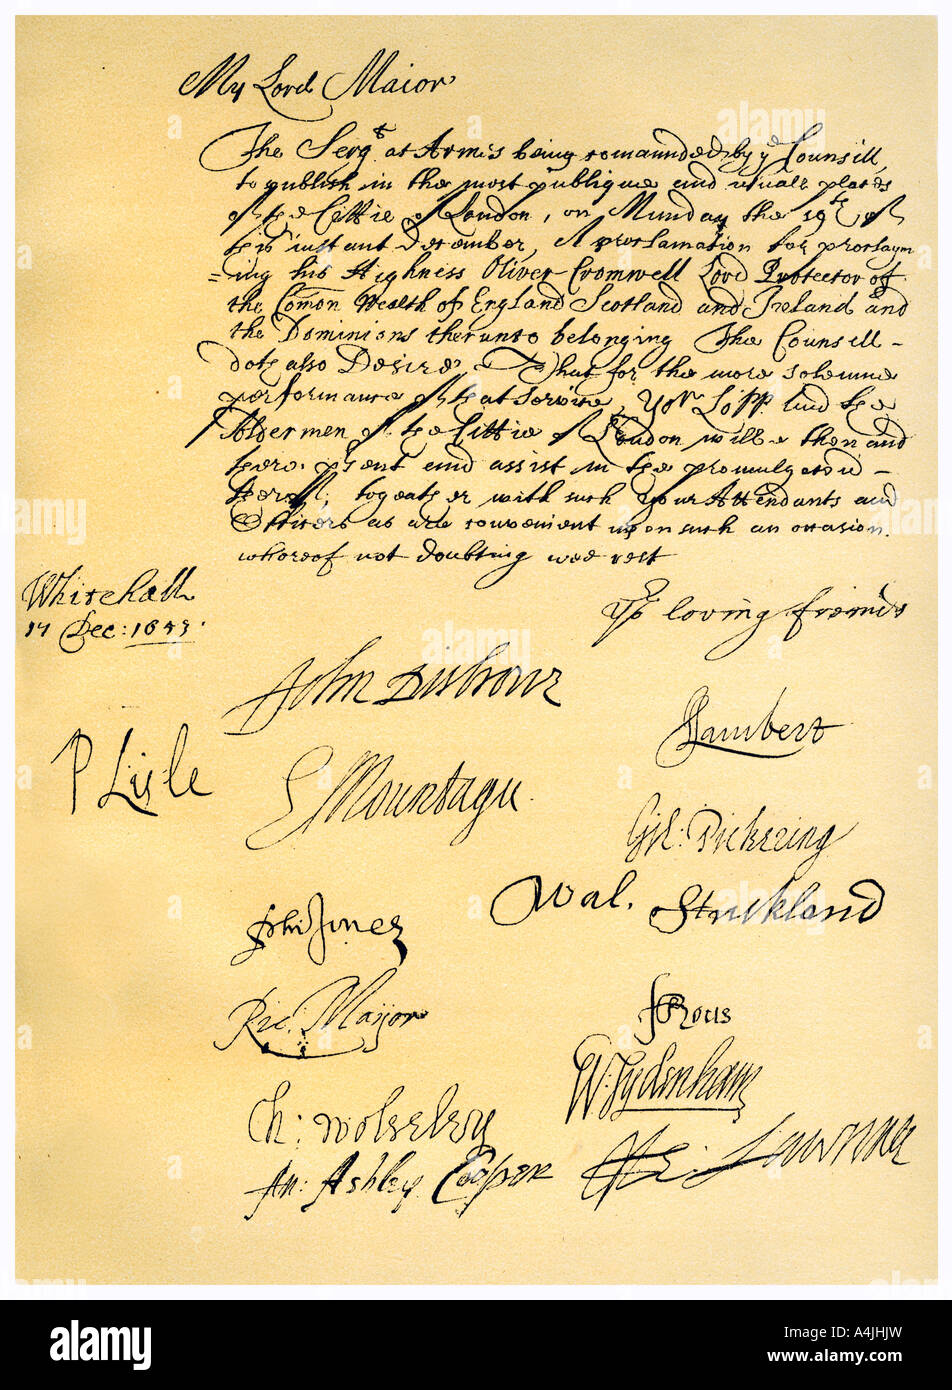 My Lord Maior
The Sergt at Armes being comaunded by ye Counsill
to publish in the most publique and usuall places
of the Cittie of London, on Munday the 19th of
this instant December, A proclamation for proclaym
=ing his Highness Oliver Cromwell Lord Protector of
the Com̄on Wealth of England Scotland and Ireland and
the Dominions thereunto belonging The Counsill -
doth also Desire, That for the more solemne
performance of that service, Yor Lopp. and the
Aldermen of the Cittie of London will be then and
there p'sent and assist in the promulgation -
thereof, togeather with such your Attendants and
Officers as are convenient upon such an occasion.
whereof not doubting wee rest
Whitehall
17 Dec: 1653.
Yor loving friends
John Disbrowe
Lambert
P Lisle
E Mountagu
Gil: Pickering
Wal. Strickland
Phi Jones
Ric. Maijor
F Rous
W: Sydenham
Ch: Wolseley
An: Ashley Cooper
He: Lawrence
alamy
a
alamy
Image ID: A4JHJW
www.alamy.com